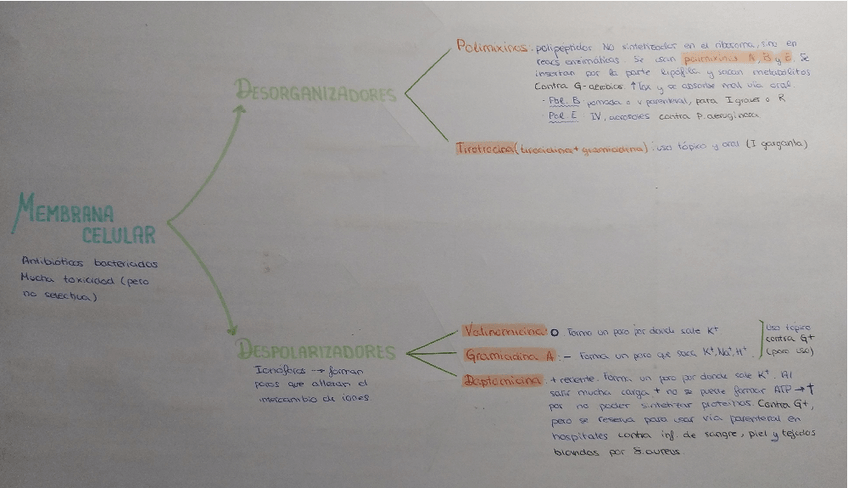 MEMBRANA
CELULAR
Antibióticos bactericidas
Mucha toxicidad (pero
no selectiva)
DESORGANIZADORES
Polimixinas. polipéptidos. No sintetizados en el ribosoma, sino en
reacs enzimáticas. Se usan polimixinas A, B y E. Se
insertan por la parte lipófila y sacan metabolitos
Contra G- aerobios. ↑tox y se absorbe mal vía oral.
- Pol. B pomada o v parenteral, para I graves o R
- Pol. E IV, aerosoles contra P. aeruginosa
Tirotricina (tirocidina + gramicidina): uso tópico y oral (I garganta)
DESPOLARIZADORES
Ionóforos → forman
poros que alteran el
intercambio de iones
Valinomicina: Forma un poro por donde sale K+
Gramicidina A: - Forma un poro que saca K+, Na+, H+
Uso tópico
contra G+
(poco uso)
Daptomicina: + reciente. Forma un poro por donde sale K+. Al
salir mucha carga + no se puede formar ATP → †
por no poder sintetizar proteínas. Contra G+,
pero se reserva para usar vía parenteral en
hospitales contra inf. de sangre, piel y tejidos
blandos por S. aureus.